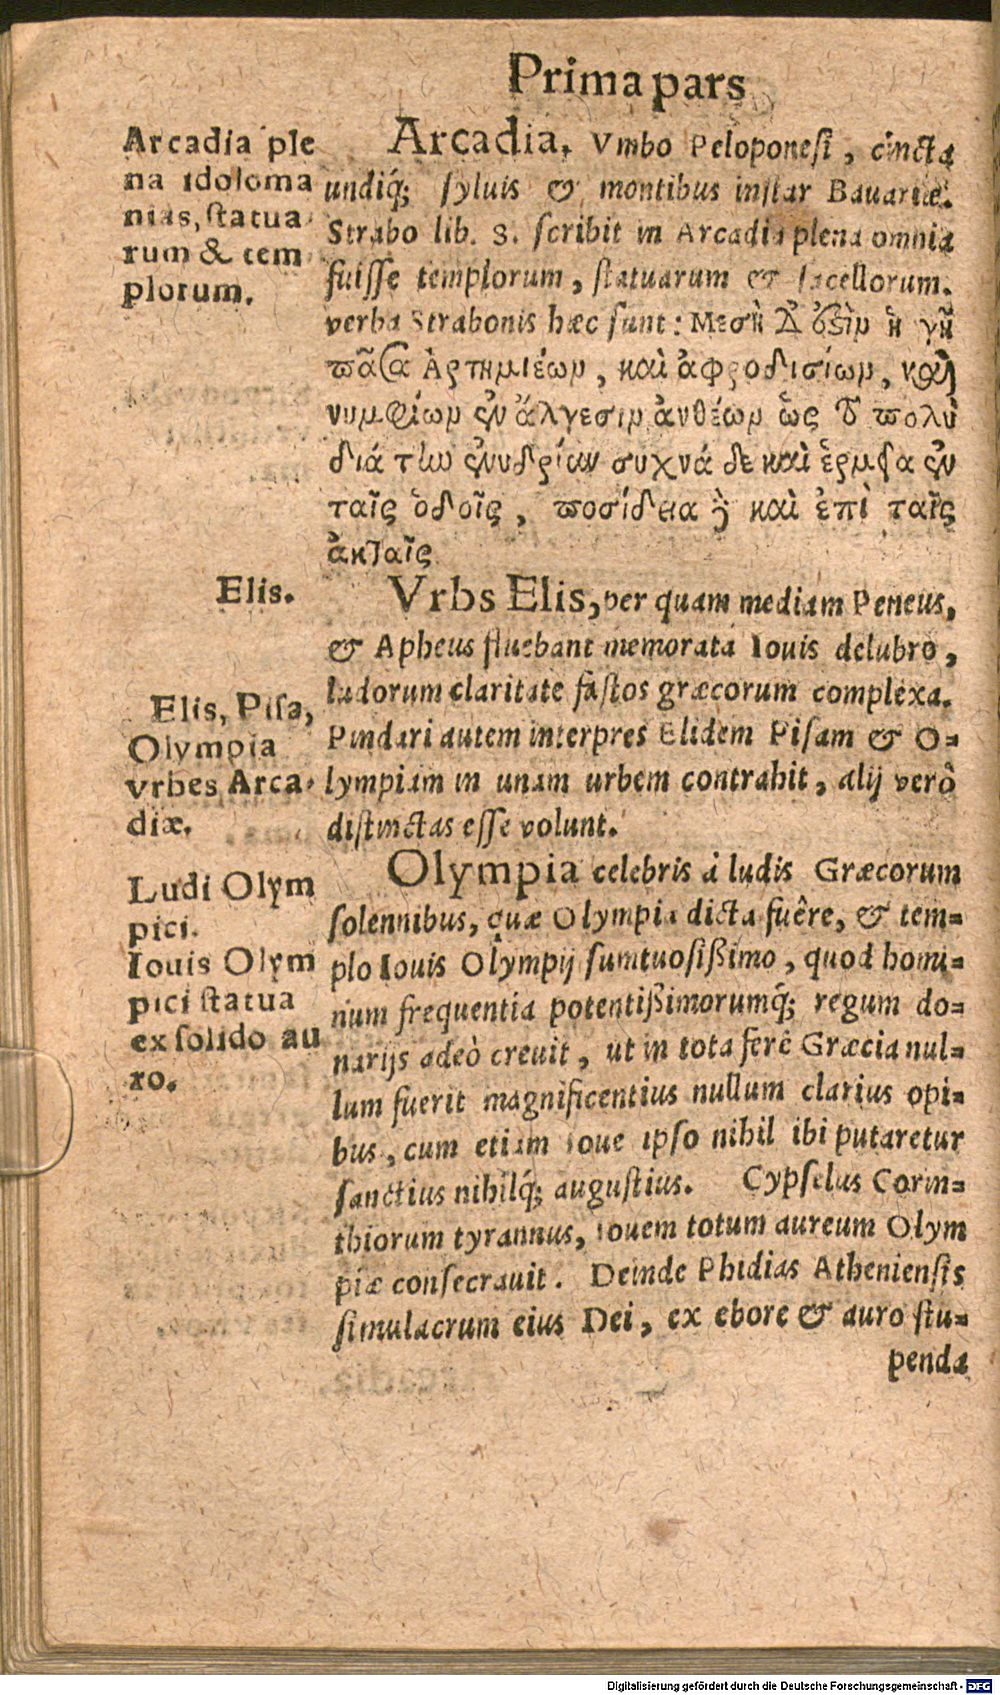 Prima pars
Arcadia ple
na idoloma
nias, ſtatua
rum & tem
plorum.
Arcadia. Vmbo Peloponeſi, cincta
undiq́; ſyluis & montibus inſtar Bauariæ.
Strabo lib. 8. ſcribit in Arcadia plena omnia
fuiſſe templorum, ſtatuarum & ſacellorum.
verba Strabonis hæc ſunt: Μεσὴ δ᾽ ἐξὶν ἡ γῆ
πᾶσα Ἀρτημιέων, καὶ ἀφροδισίων, καὶ
νυμφίων ἐν ἄλγεσιν ἀνθέων ὡς τὸ πολὺ
διά τὴν ἐνυδρίαν συχνά δε καὶ ἑρμεῖα ἐν
ταῖς ὁδοῖς, ποσίδεια δὲ καὶ ἐπὶ ταῖς
ἀκταῖς
Elis.
Vrbs Elis, per quam mediam Peneus,
& Apheus fluebant memorata Iouis delubro,
ludorum claritate faſtos græcorum complexa.
Elis, Piſa,
Olympia
vrbes Arca-
diæ.
Pindari autem interpres Elidem Piſam & O-
lympiam in unam urbem contrahit, alij verò
diſtinctas eſſe volunt.
Ludi Olym
pici.
Iouis Olym
pici ſtatua
ex ſolido au
ro.
Olympia celebris á ludis Græcorum
ſolennibus, quæ Olympia dicta fuêre, & tem-
plo Iouis Olympij ſumtuoſißimo, quod homi-
num frequentia potentißimorumq́; regum do-
narijs adeò creuit, ut in tota ferè Græcia nul-
lum fuerit magnificentius nullum clarius opi-
bus, cum etiam Ioue ipſo nihil ibi putaretur
ſanctius nihilq́; auguſtius. Cypſelus Corin-
thiorum tyrannus, Iouem totum aureum Olym
piæ conſecrauit. Deinde Phidias Athenienſis
ſimulacrum eius Dei, ex ebore & auro ſtu-
penda
Digitalisierung gefördert durch die Deutsche Forschungsgemeinschaft - DFG